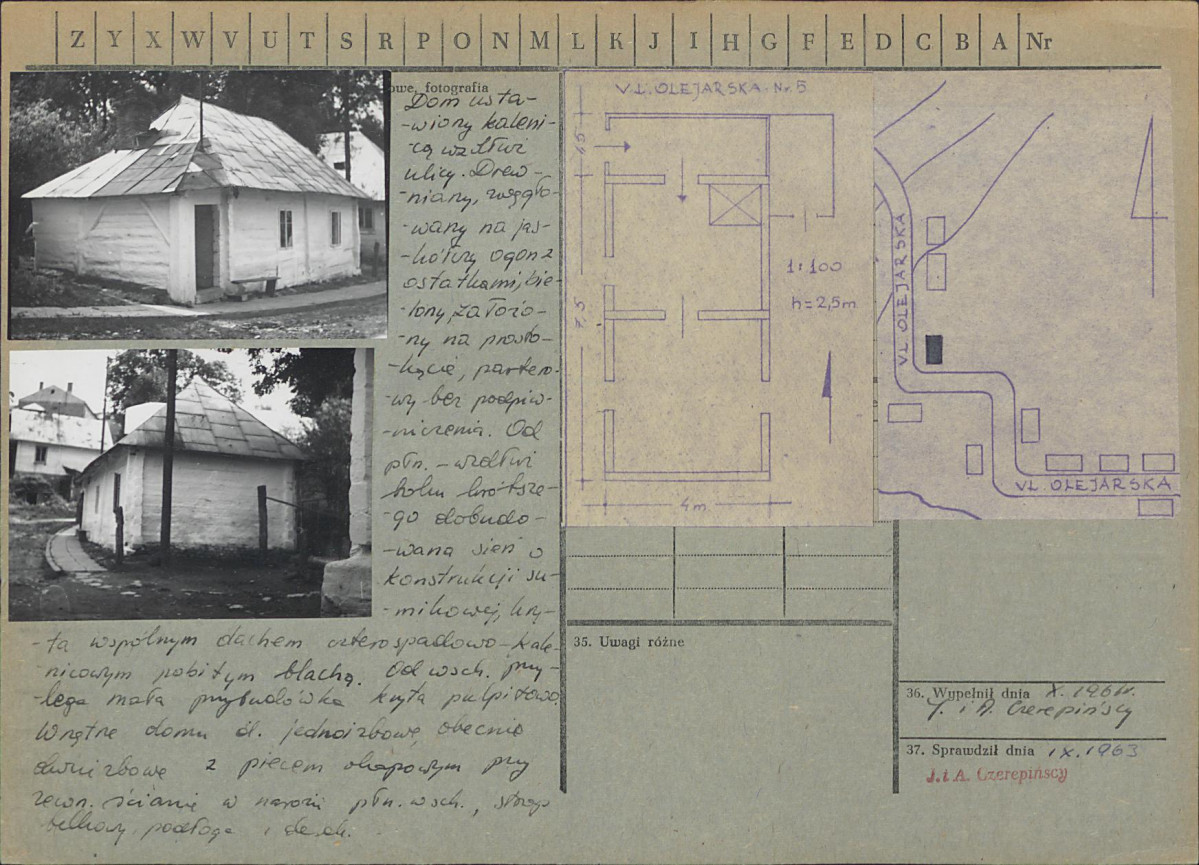 Z Y X W V U T S R P O N M L K J I H G F E D C B A Nr
owe, fotografia
Dom usta-
-wiony kaleni-
cą wzdłuż
ulicy. Drew-
-niany, węgło-
-wany na jas-
-kółczy ogon z
ostatkami, bie-
-lony, założo-
-ny na prosto-
-kącie, partero-
-wy bez podpiw-
-niczenia. Od
płn. - wzdłuż
boku krótsze-
-go dobudo-
-wana sień o
konstrukcji su-
-mikowej, kry-
-ta wspólnym dachem czterospadowo-kale-
-nicowym pobitym blachą. Od wsch. przy-
-lega mała przybudówka kryta pulpitowo.
Wnętrze domu d. jednoizbowe, obecnie
dwuizbowe z piecem okapowym przy
zewn. ścianie w narożu płn. wsch., strop
belkowy, podłoga z desek.
VL. OLEJARSKA. Nr. 5
1,65
7,5
4m
1:100
h=2,5m
VL. OLEJARSKA
VL. OLEJARSKA
35. Uwagi różne
36. Wypełnił dnia X. 1961r.
J. i A. Czerepińscy
37. Sprawdził dnia IX. 1963
J. i A. Czerepińscy